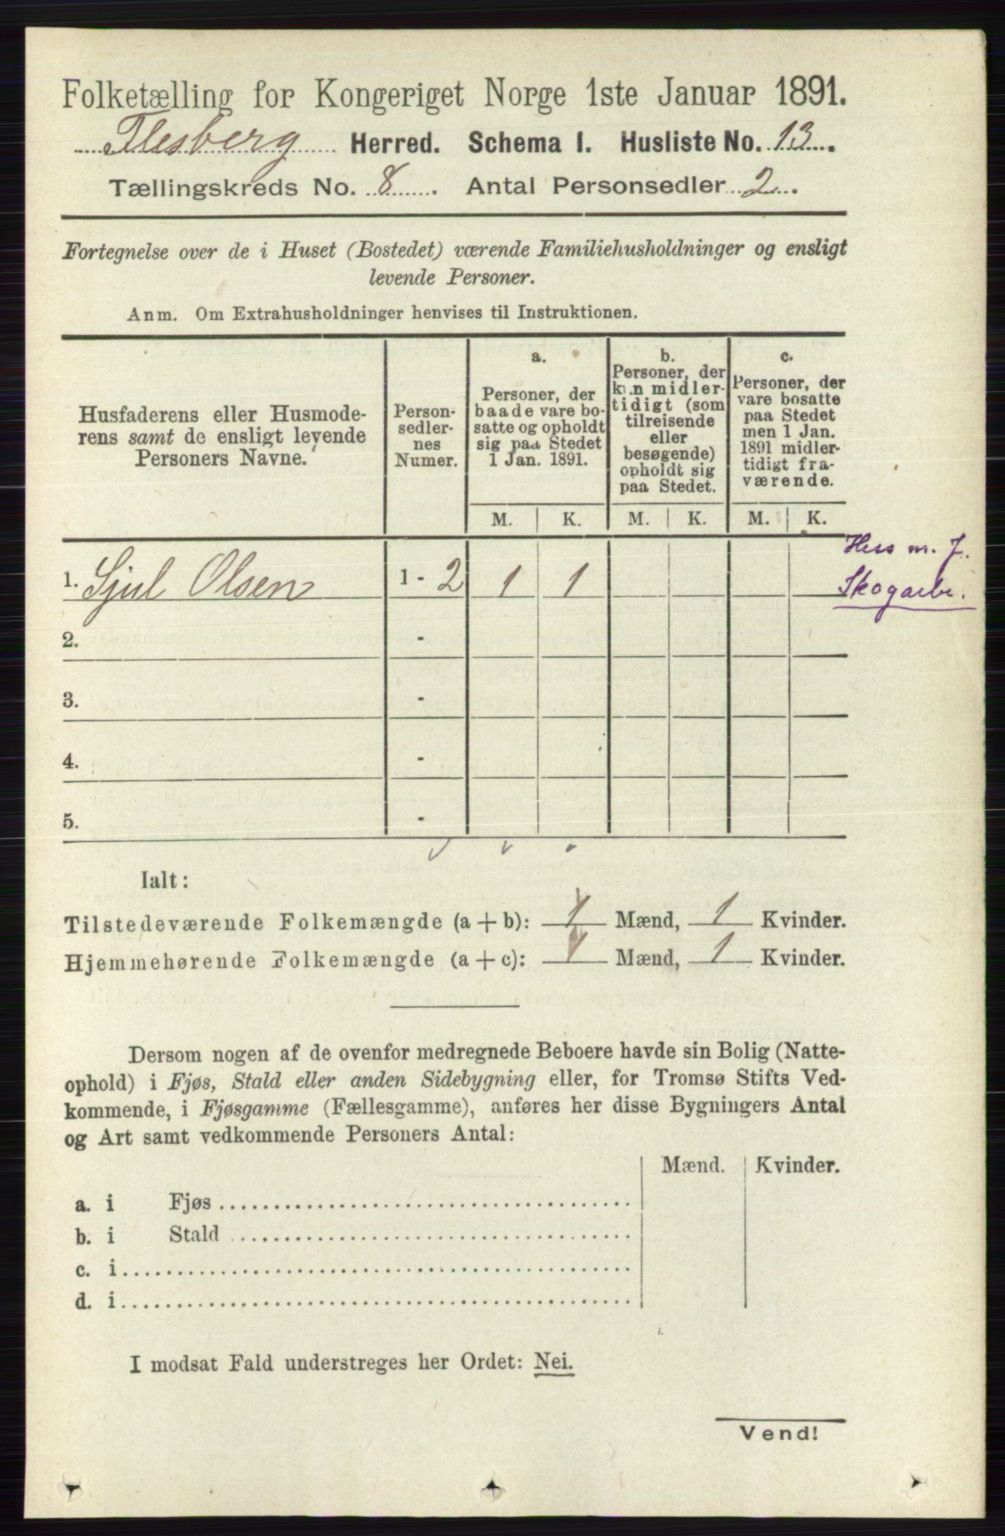 Folketælling for Kongeriget Norge 1ste Januar 1891.
Flesberg Herred. Schema I. Husliste No. 13.
Tællingskreds No. 8. Antal Personsedler 2.
Fortegnelse over de i Huset (Bostedet) værende Familiehusholdninger og ensligt
levende Personer.
Anm. Om Extrahusholdninger henvises til Instruktionen.
Husfaderens eller Husmode-
rens samt de ensligt levende
Personers Navne.
Person-
sedler-
nes
Numer.
a.
Personer, der
baade vare bo-
satte og opholdt
sig paa Stedet
1 Jan. 1891.
b.
Personer, der
kun midler-
tidigt (som
tilreisende
eller
besøgende)
opholdt sig
paa Stedet.
c.
Personer, der
vare bosatte
paa Stedet
men 1 Jan.
1891 midler-
tidigt fra-
værende.
M. K. M. K. M. K.
1. Sjul Olsen 1 - 2 1 1
Hus m. J.
Skogarb.
2. -
3. -
4. -
5. -
Ialt:
Tilstedeværende Folkemængde (a + b): 1 Mænd, 1 Kvinder.
Hjemmehørende Folkemængde (a + c): 1 Mænd, 1 Kvinder.
Dersom nogen af de ovenfor medregnede Beboere havde sin Bolig (Natte-
ophold) i Fjøs, Stald eller anden Sidebygning eller, for Tromsø Stifts Ved-
kommende, i Fjøsgamme (Fællesgamme), anføres her disse Bygningers Antal
og Art samt vedkommende Personers Antal:
Mænd. Kvinder.
a. i Fjøs
b. i Stald
c. i
d. i
I modsat Fald understreges her Ordet: Nei.
Vend!